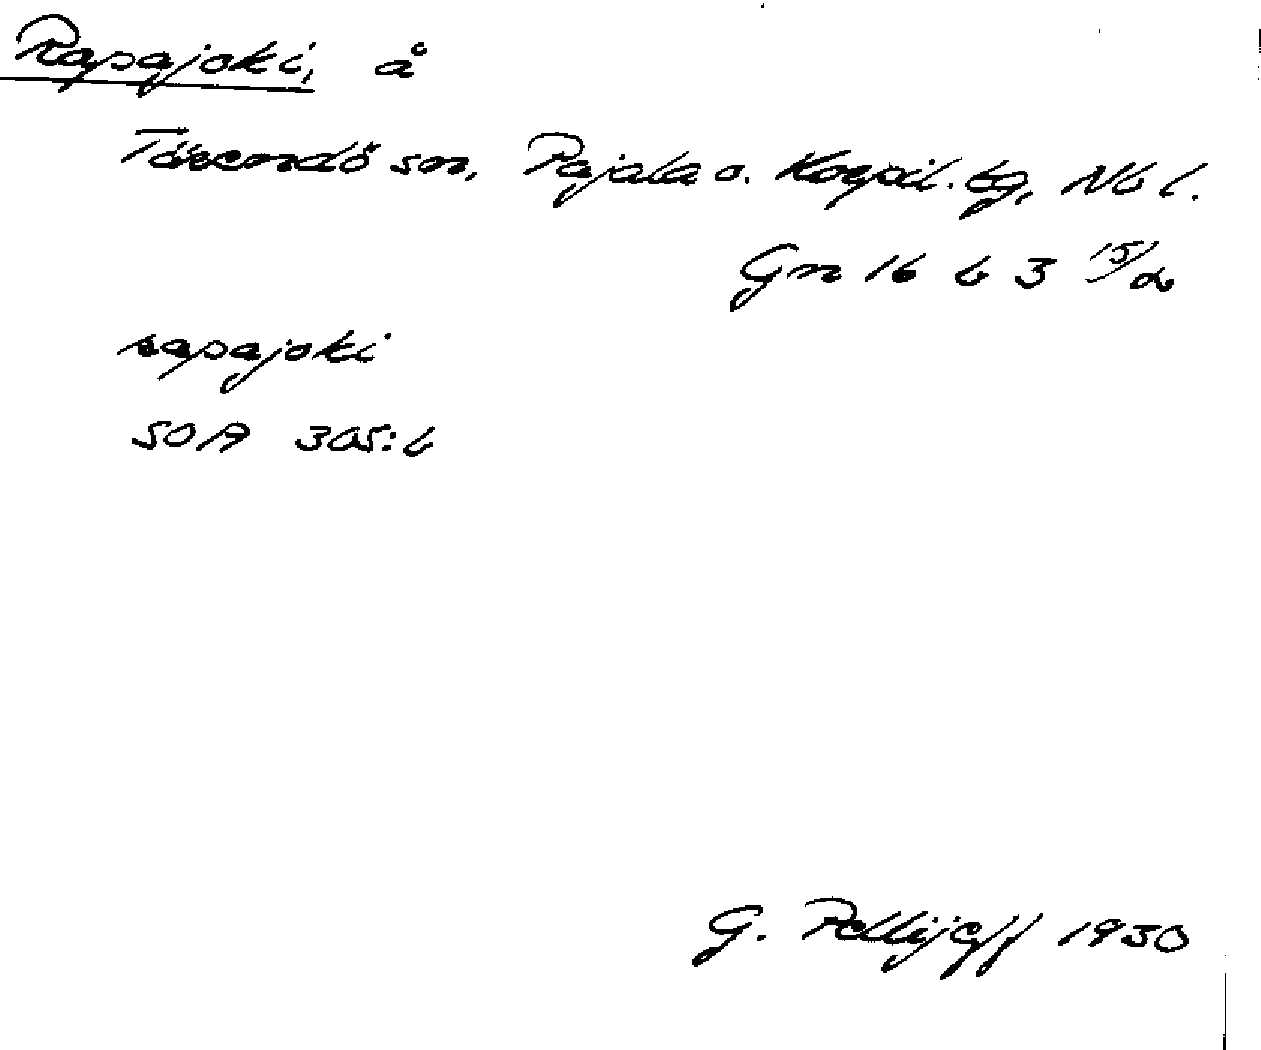 Rapajoki, å
Tärendö sn, Pajala o. Korpil. tg, Nb l.
Gn 16 b 3 15/2
rapajoki
SOA 305:6
G. Pellijeff 1950